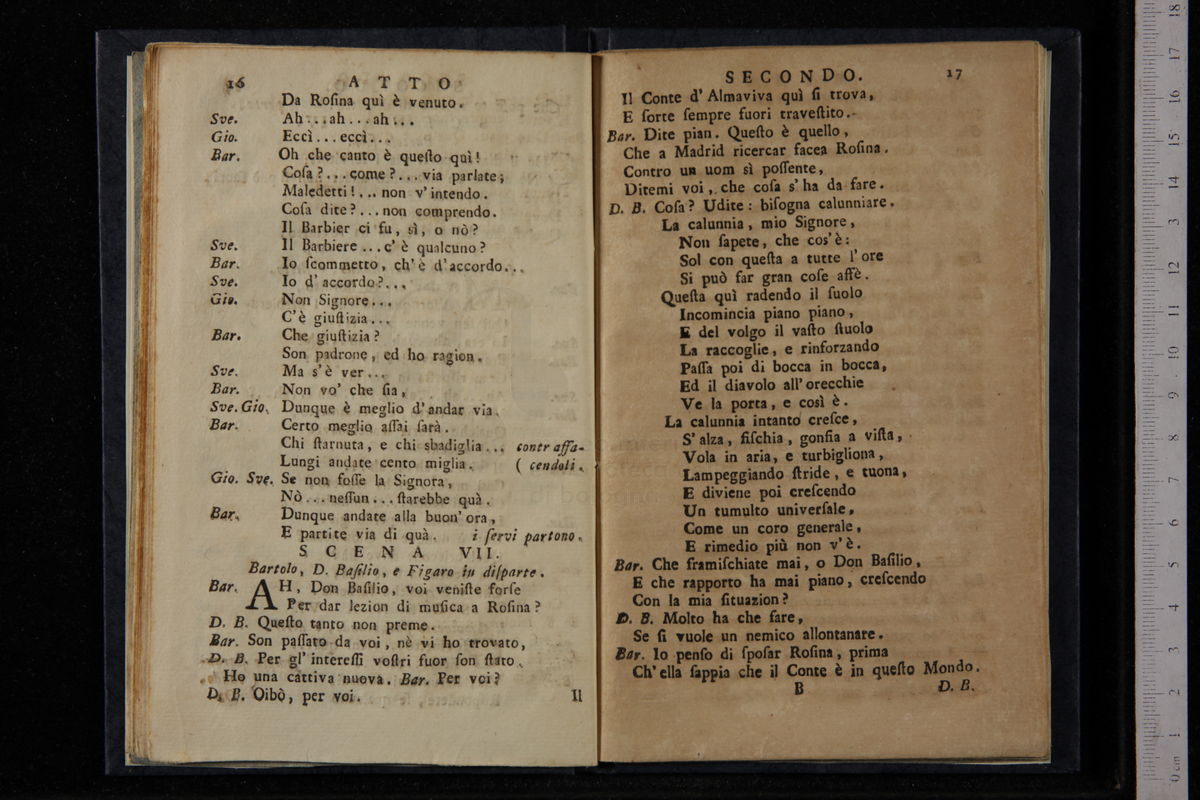 16 ATTO
Da Roſina quì è venuto.
Sve. Ah...ah...ah...
Gio. Eccì...eccì...
Bar. Oh che canto è queſto quì!
Coſa?...come?...via parlate;
Maledetti!...non v'intendo.
Coſa dite?...non comprendo.
Il Barbier ci fu, sì, o nò?
Sve. Il Barbiere...c'è qualcuno?
Bar. Io ſcommetto, ch'è d'accordo...
Sve. Io d'accordo?...
Gio. Non Signore...
C'è giuſtizia...
Bar. Che giuſtizia?
Son padrone, ed ho ragion.
Sve. Ma s'è ver...
Bar. Non vo' che ſia,
Sve. Gio. Dunque è meglio d'andar via.
Bar. Certo meglio aſſai ſarà.
Chi ſtarnuta, e chi sbadiglia... contraffa-
Lungi andate cento miglia. ( cendoli.
Gio. Sve. Se non foſſe la Signora,
Nò...neſſun...ſtarebbe quà.
Bar. Dunque andate alla buon'ora,
E partite via di quà. i ſervi partono.
SCENA VII.
Bartolo, D. Baſilio, e Figaro in diſparte.
Bar. AH, Don Baſilio, voi veniſte forſe
Per dar lezion di muſica a Roſina?
D. B. Queſto tanto non preme.
Bar. Son paſſato da voi, nè vi ho trovato,
D. B. Per gl'intereſſi voſtri fuor ſon ſtato.
Ho una cattiva nuova. Bar. Per voi?
D. B. Oibò, per voi. Il
SECONDO. 17
Il Conte d'Almaviva quì ſi trova,
E ſorte ſempre fuori traveſtito.
Bar. Dite pian. Queſto è quello,
Che a Madrid ricercar facea Roſina.
Contro un uom sì poſſente,
Ditemi voi, che coſa s'ha da fare.
D. B. Coſa? Udite: biſogna calunniare.
La calunnia, mio Signore,
Non ſapete, che cos'è:
Sol con queſta a tutte l'ore
Si può far gran coſe affè.
Queſta quì radendo il ſuolo
Incomincia piano piano,
E del volgo il vaſto ſtuolo
La raccoglie, e rinforzando
Paſſa poi di bocca in bocca,
Ed il diavolo all'orecchie
Ve la porta, e così è.
La calunnia intanto creſce,
S'alza, fiſchia, gonfia a viſta,
Vola in aria, e turbigliona,
Lampeggiando ſtride, e tuona,
E diviene poi creſcendo
Un tumulto univerſale,
Come un coro generale,
E rimedio più non v'è.
Bar. Che framiſchiate mai, o Don Baſilio,
E che rapporto ha mai piano, creſcendo
Con la mia ſituazion?
D. B. Molto ha che fare,
Se ſi vuole un nemico allontanare.
Bar. Io penſo di ſpoſar Roſina, prima
Ch'ella ſappia che il Conte è in queſto Mondo.
B D. B.